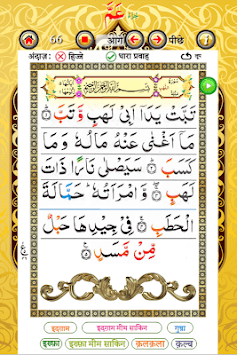 عَمَّ
66
आगे
पीछे
अंदाज़: हिज्जे धारा प्रवाह
تَبَّتْ يَدَا اَبِیْ لَهَبٍ وَّ تَبَّ ۝۱
مَاۤ اَغْنٰی عَنْهُ مَالُهٗ وَ مَا
كَسَبَ ۝۲ سَیَصْلٰی نَارًا ذَاتَ
لَهَبٍ ۝۳ وَّ امْرَاَتُهٗ ؕ حَمَّالَةَ
الْحَطَبِ ۝۴ فِیْ جِیْدِهَا حَبْلٌ
مِّنْ مَّسَدٍ ۝۵
इदग़ाम इदग़ाम मीम साकिन ग़ुन्ना
इख्फ़ा इख्फ़ा मीम साकिन क़लक़ला क़ल्ब